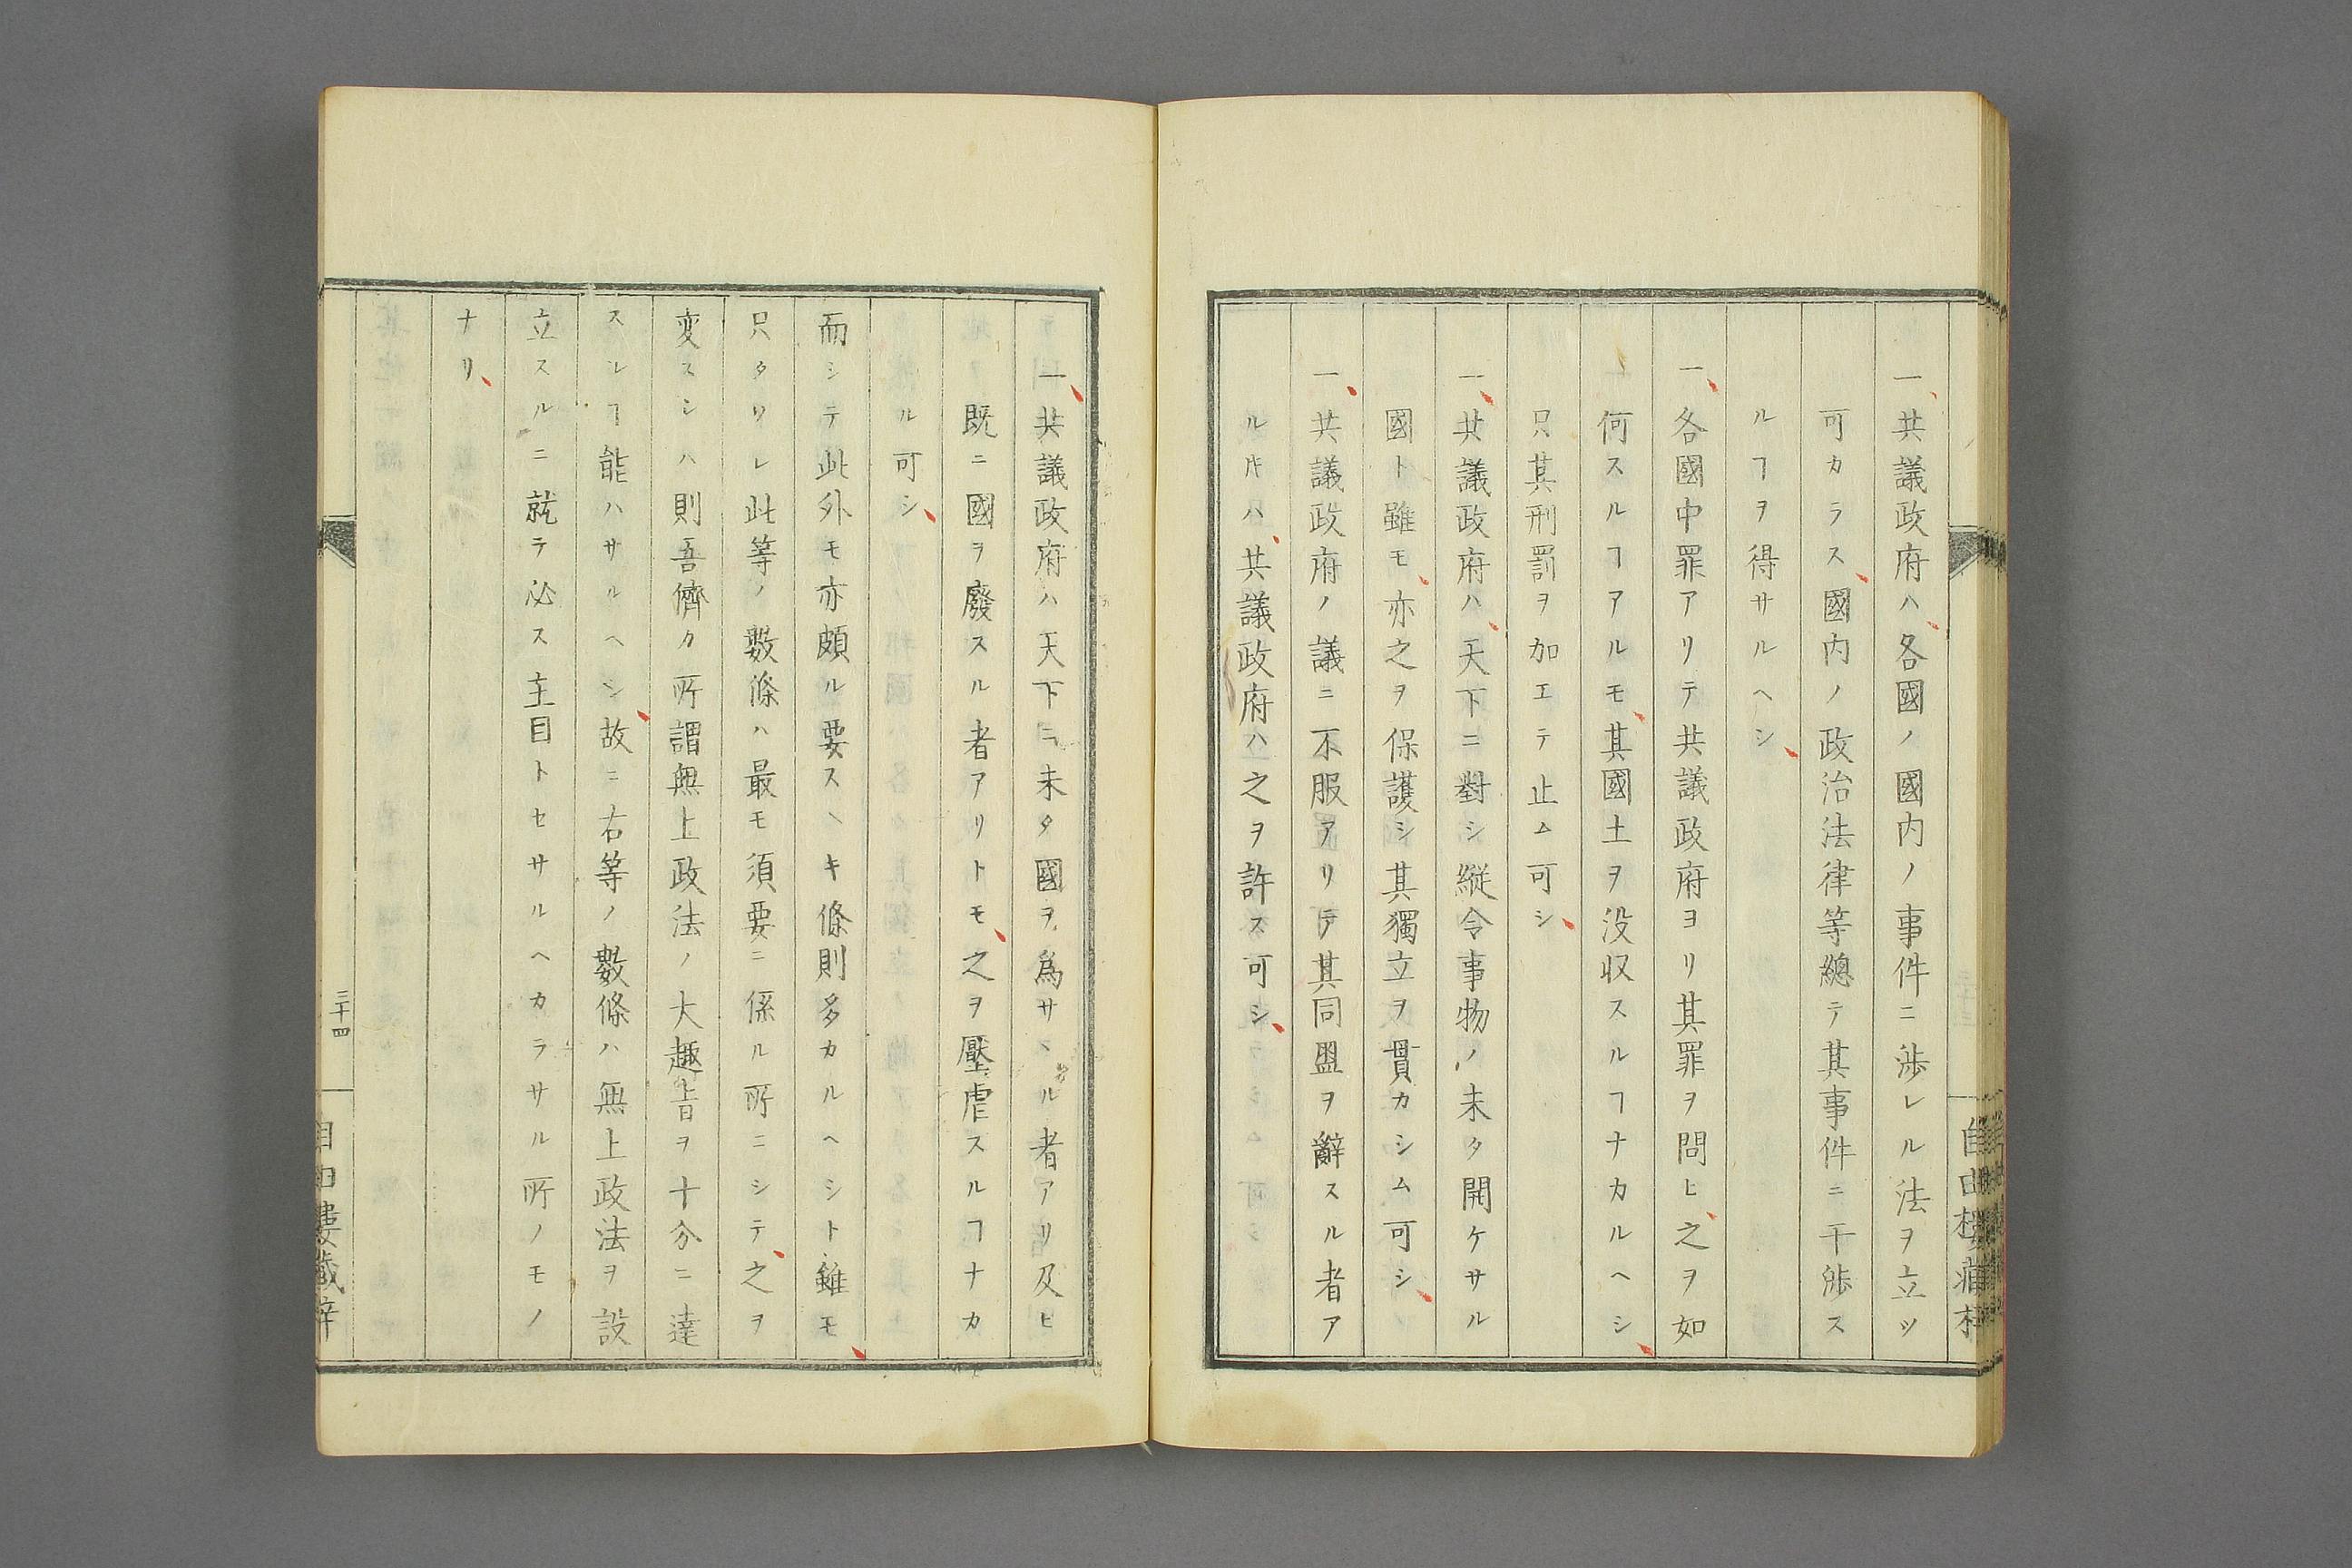 一共議政府ハ各國ノ國内ノ事件ニ渉レル法ヲ立ツ
可カラス國内ノ政治法律等總テ其事件ニ干渉ス
ルヿヲ得サルヘシ
一各國中罪アリテ共議政府ヨリ其罪ヲ問ヒ之ヲ如
何スルヿアルモ其國土ヲ没収スルヿナカルヘシ
只其刑罰ヲ加エテ止ム可シ
一共議政府ハ天下ニ對シ縦令事物ノ未タ開ケサル
國ト雖モ亦之ヲ保護シ其獨立ヲ貫カシム可シ
一共議政府ノ議ニ不服アリテ其同盟ヲ辭スル者ア
ルㇻハ共議政府ハ之ヲ許ス可シ
一共議政府ハ天下ニ未タ國ヲ為サヽル者アリ及ヒ
既ニ國ヲ廢スル者アリトモ之ヲ壓虐スルヿナカ
ル可シ
而シテ此外モ亦頗ル要スヘキ條則多カルヘシト雖モ
只タリレ此等ノ數條ハ最モ須要ニ係ル所ニシテ之ヲ
変スシハ則吾儕カ所謂無上政法ノ大趣旨ヲ十分ニ達
スレヿ能ハサルヘシ故ニ右等ノ數條ハ無上政法ヲ設
立スルニ就テ必ス主目トセサルヘカラサル所ノモノ
ナリ
三十四
自由樓藏梓